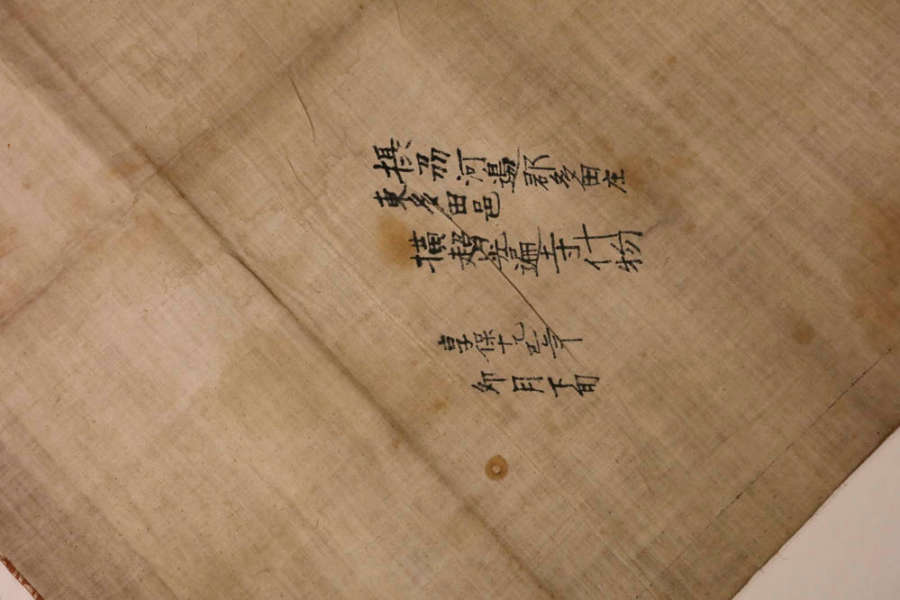 摂刕河邊郡多田庄
東多田邑
横超山光遍寺什物
享保十乙巳年
卯月下旬